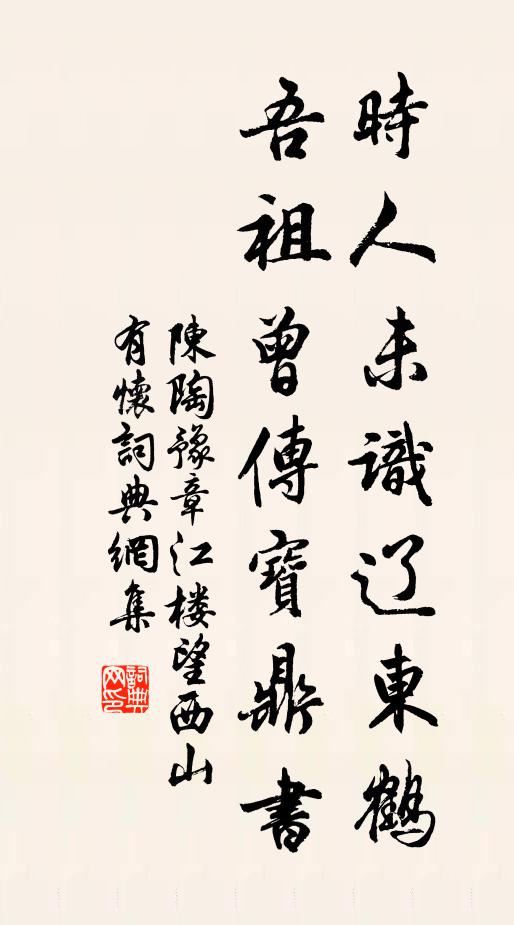 時人未識辽東鶴
吾祖曾傳寶鼎書
陳陶豫章江楼望西山
有懷詞典網集
詞典網印